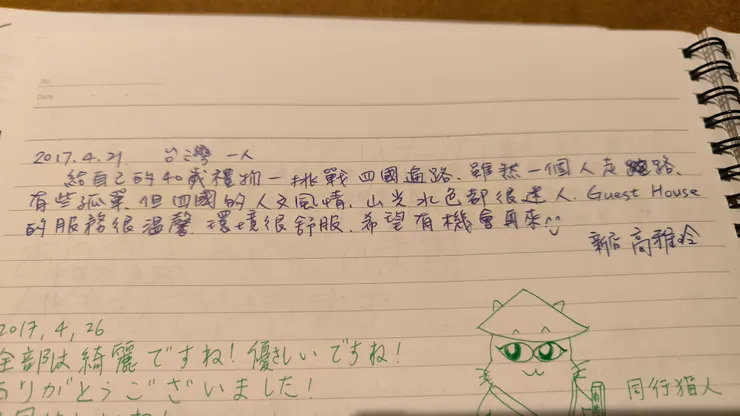 No.
Date
2017.4.21 台灣 一人
給自己的40歲禮物一挑戰四國遍路.雖然一個人走路.
有些孤單.但四國的人文風情.山光水色都很迷人.Guest House
的服務很溫馨.環境很舒服.希望有機會再來!
高雅
2017,4,26
全部は綺麗ですね!優しいですね!
ありがとうございました!
同行猫人